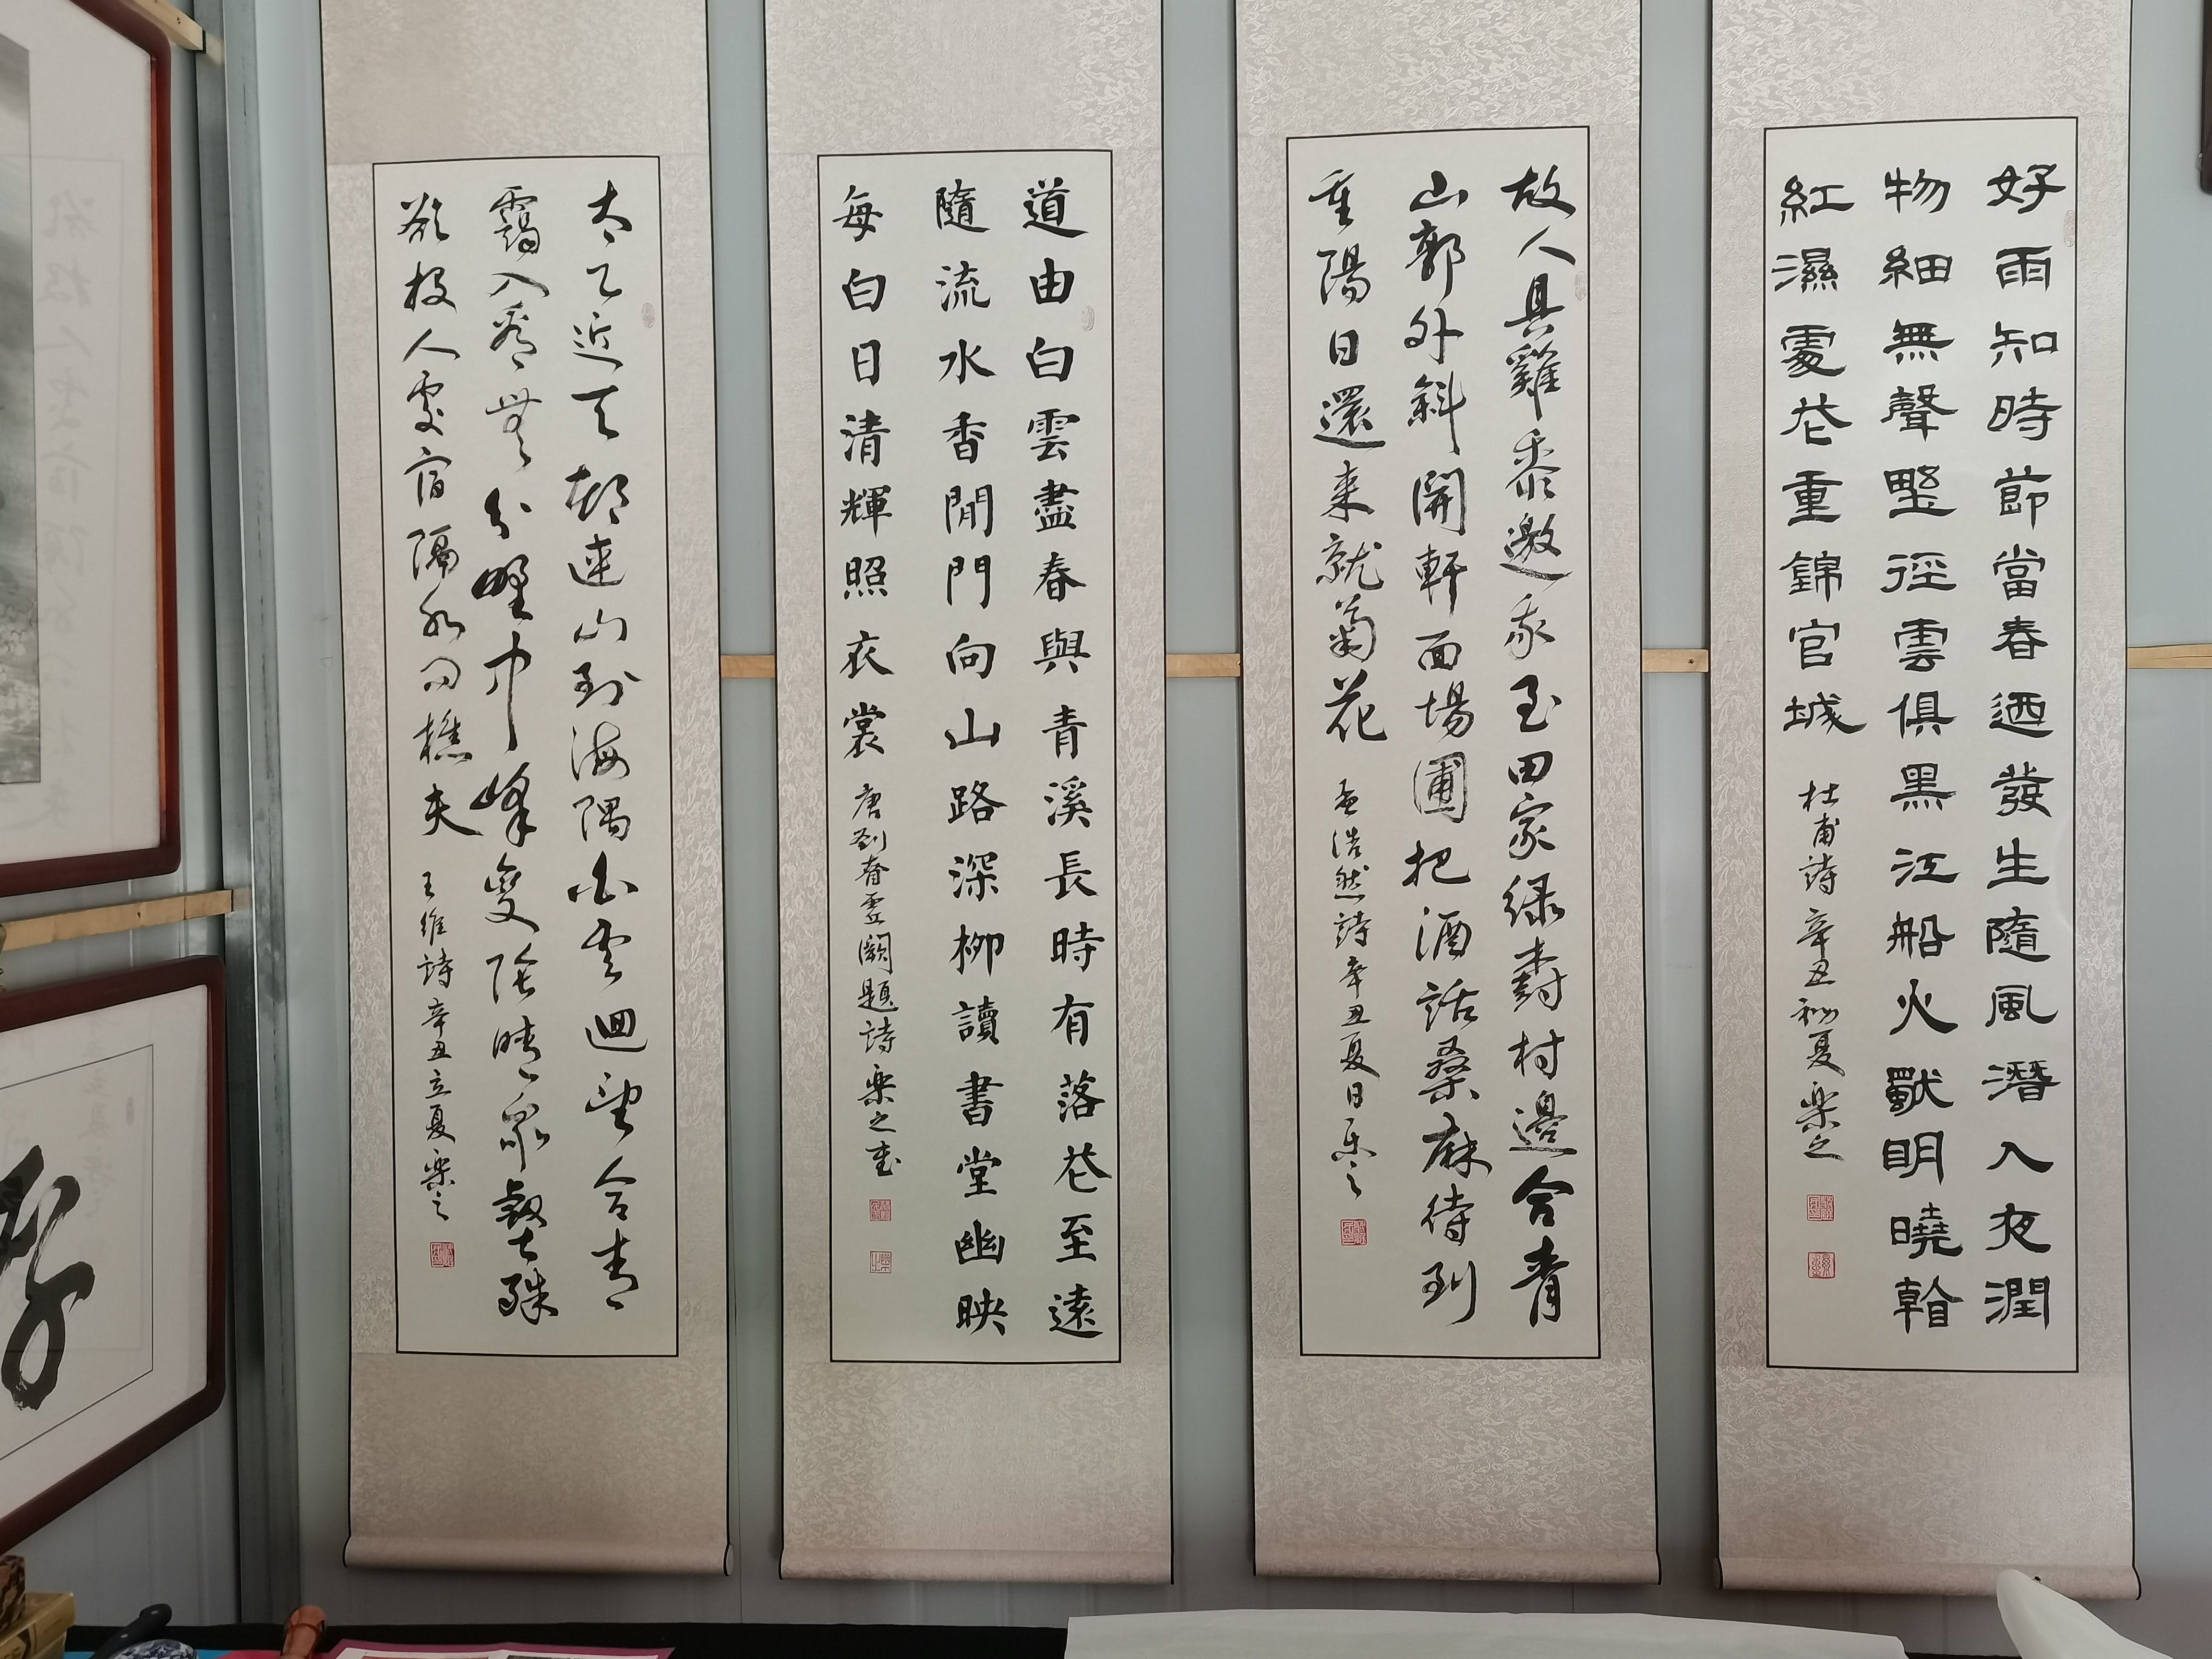 好雨知時節當春迺發生隨風潛入夜潤
物細無聲野徑雲俱黑江船火獨明曉看
紅濕處花重錦官城
杜甫詩 辛丑初夏 樂之
故人具雞黍邀我至田家綠樹村邊合青
山郭外斜開軒面場圃把酒話桑麻待到
重陽日還来就菊花
孟浩然詩辛丑夏日樂之
道由白雲盡春與青溪長時有落花至遠
隨流水香閒門向山路深柳讀書堂幽映
每白日清輝照衣裳
唐劉眘虛闕題詩 樂之書
太乙近天都連山到海隅白雲迴望合青
靄入看無分野中峰變陰晴衆壑殊
欲投人處宿隔水問樵夫
王維詩辛丑立夏樂之